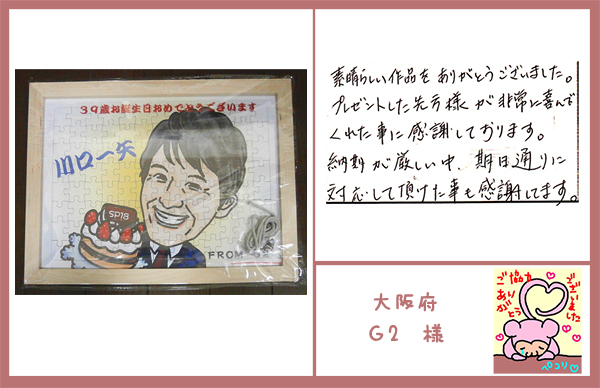 39歳お誕生日おめでとうございます
川口一矢
SP18
FROM G2
素晴らしい作品をありがとうございました。
プレゼントした先方様が非常に喜んで
くれた事に感謝しております。
納期が厳しい中、期日通りに
対応して頂けた事も感謝してます。
大阪府
G2 様
ご協力
ありがとう
ございました
ペコリ